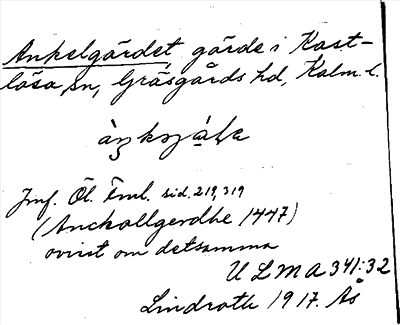 Ankelgärdet, gärde i Kast-
lösa sn, Gräsgårds hd, Kalm. l.
Jmf. Öl. Eml. sid. 219, 319
(Anckollgerdhe 1447)
ovisst om detsamma
ULMA 341:32
Lindroth 1917. Ås